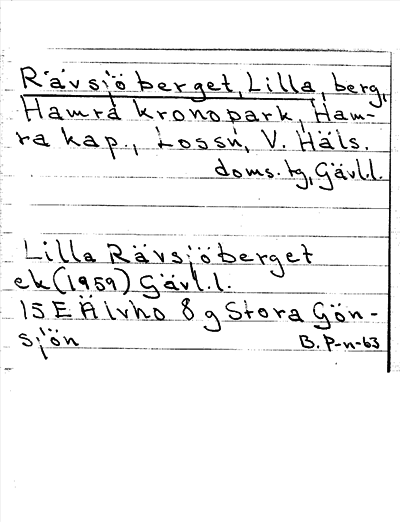 Rävsjöberget, Lilla, berg,
Hamra kronopark, Ham-
ra kap., Lossn, V. Häls.
doms. tg, Gävl.l.
Lilla Rävsjöberget
ek (1959) Gävl.l.
15 E Älvho 8 g Stora Gön-
sjön
B. P-n-63